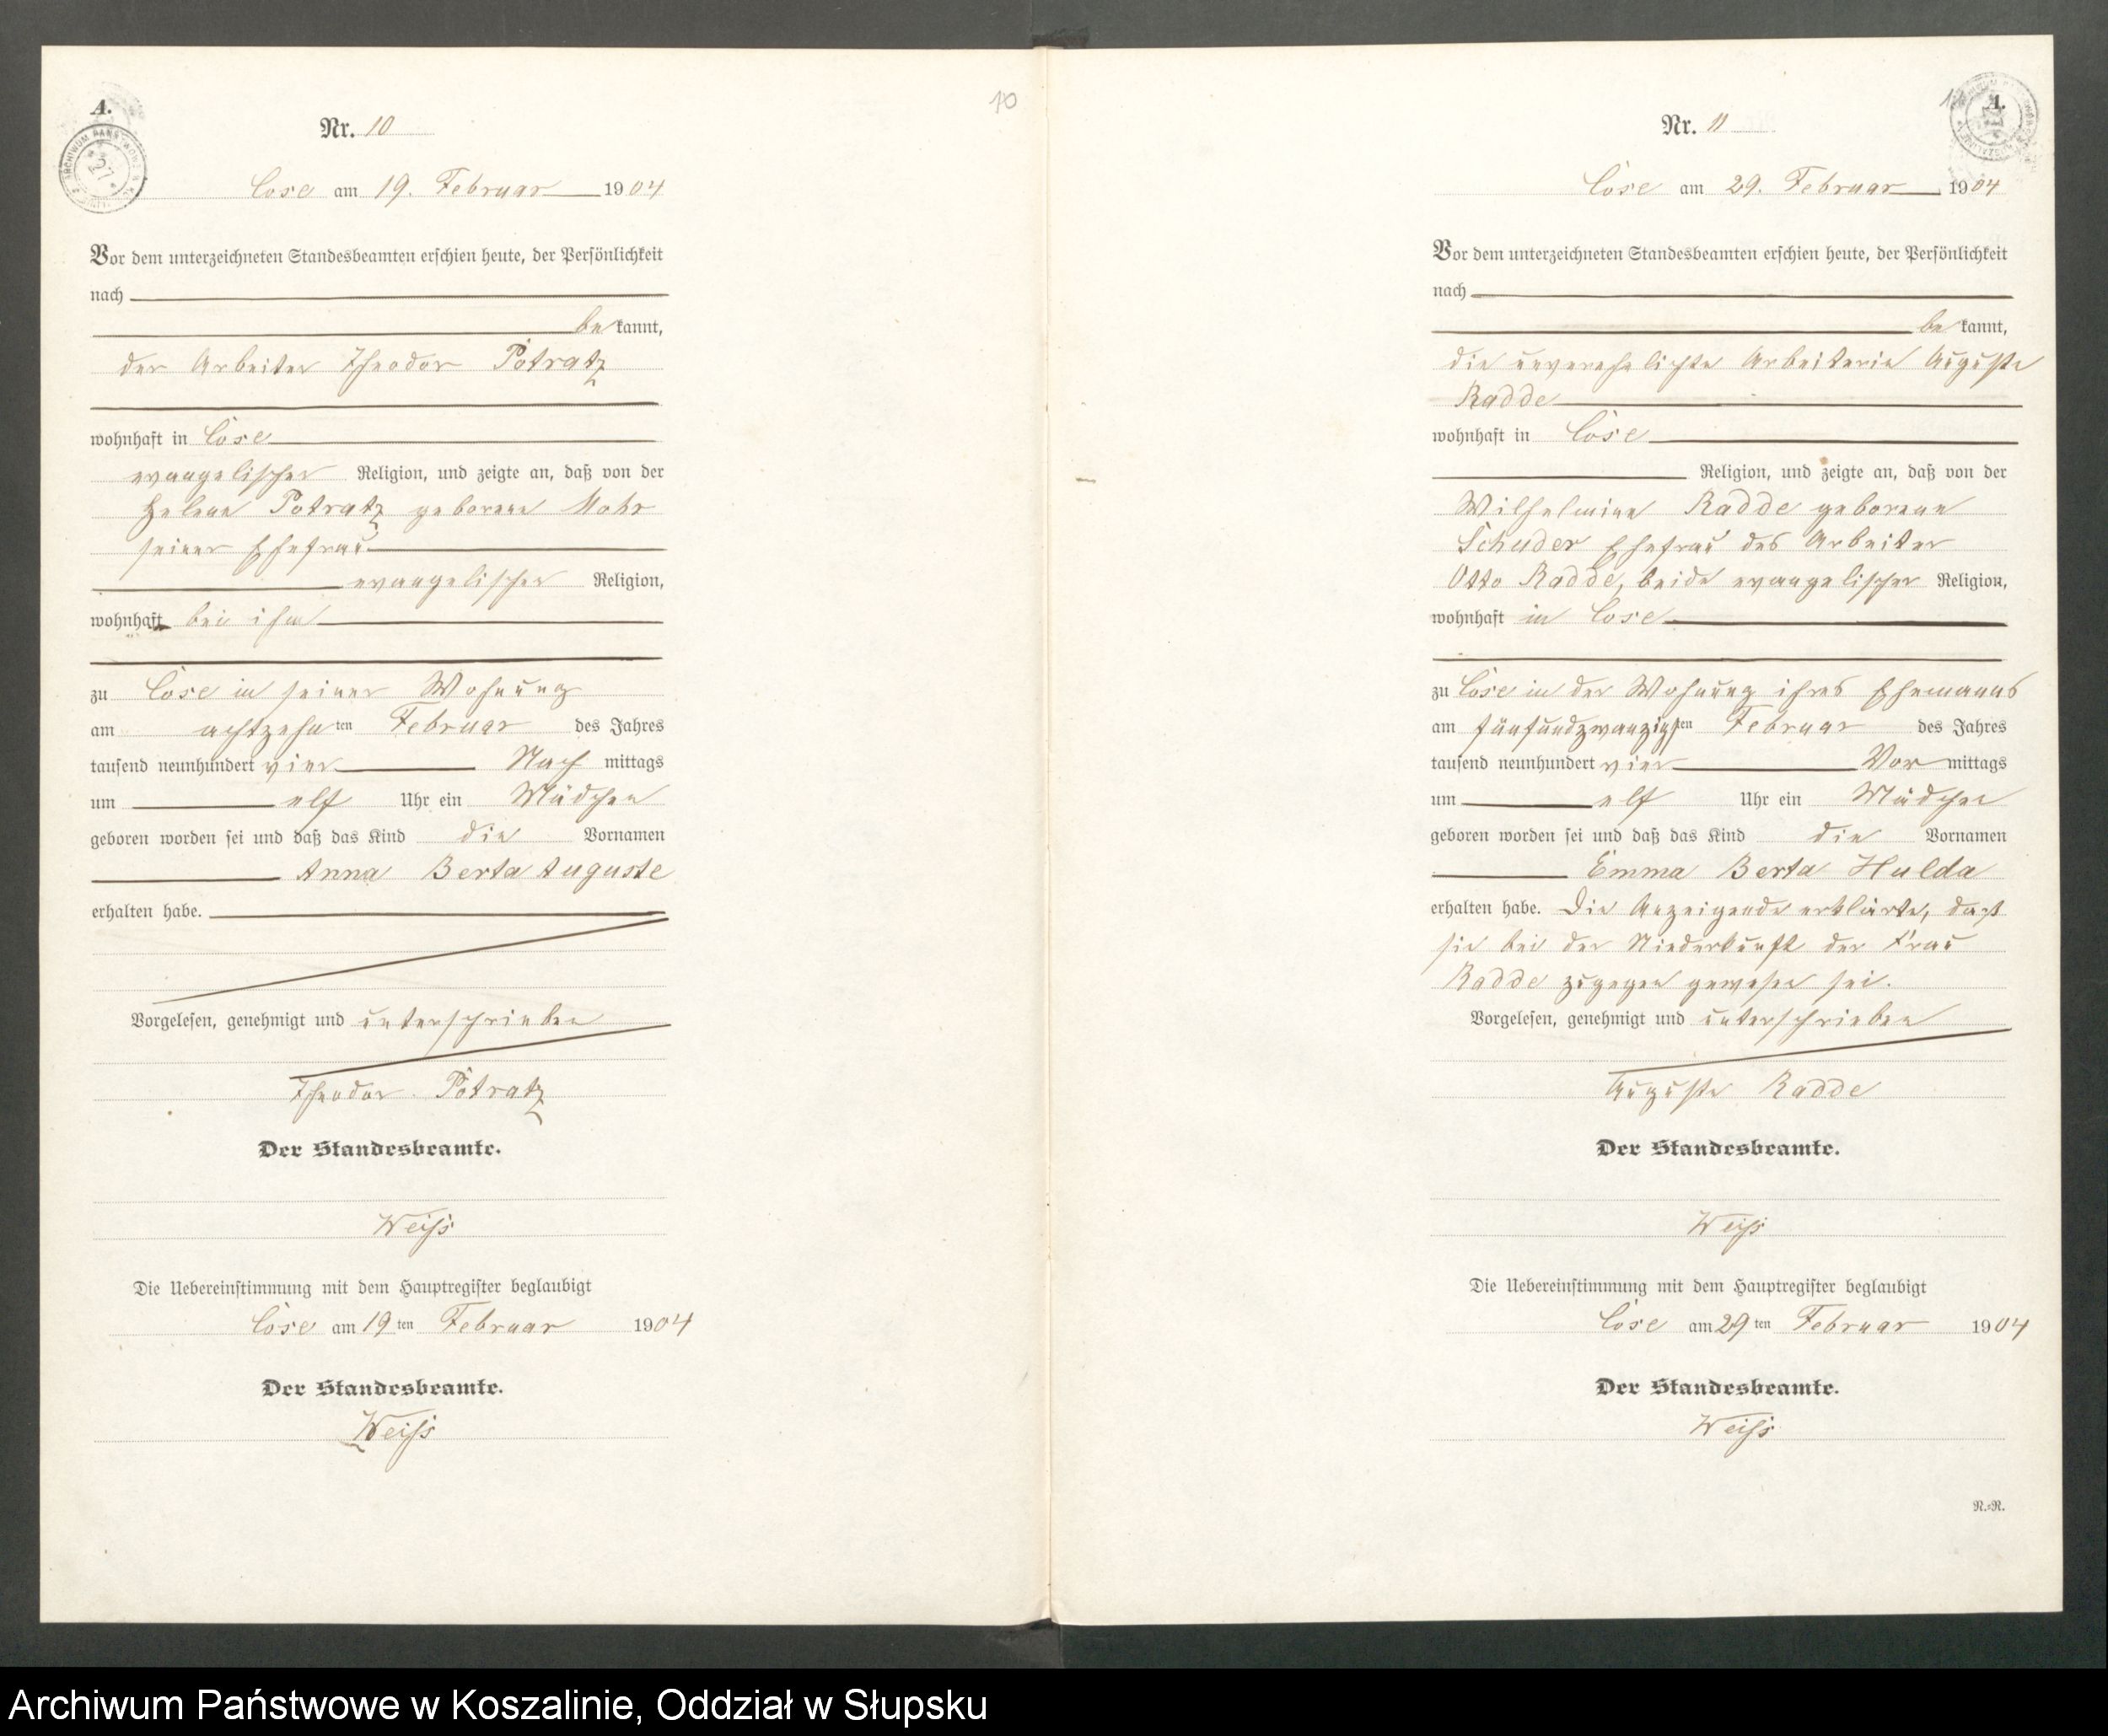 A.
Nr. 10
Cose am 19. Februar 1904
Vor dem unterzeichneten Standesbeamten erschien heute, der Persönlichkeit
nach
be kannt,
der Arbeiter Theodor Potratz
wohnhaft in Cose
evangelischer Religion, und zeigte an, daß von der
Helene Potratz geborene Mohr
seiner Ehefrau
evangelischer Religion,
wohnhaft bei ihm
zu Cose in seiner Wohnung
am achtzehn ten Februar des Jahres
tausend neunhundert vier Nach mittags
um elf Uhr ein Mädchen
geboren worden sei und daß das Kind die Vornamen
Anna Berta Auguste
erhalten habe.
Vorgelesen, genehmigt und unterschrieben
Theodor Potratz
Der Standesbeamte.
Weiß
Die Uebereinstimmung mit dem Hauptregister beglaubigt
Cose am 19 ten Februar 1904
Der Standesbeamte.
Weiß
10
A.
Nr. 11
Cose am 29. Februar 1904
Vor dem unterzeichneten Standesbeamten erschien heute, der Persönlichkeit
nach
be kannt,
die unverehelichte Arbeiterin Auguste
Radde
wohnhaft in Cose
Religion, und zeigte an, daß von der
Wilhelmine Radde geborene
Schuder Ehefrau des Arbeiter
Otto Radde, beide evangelischer Religion,
wohnhaft in Cose
zu Cose in der Wohnung ihres Ehemanns
am fünfundzwanzigsten Februar des Jahres
tausend neunhundert vier Vor mittags
um elf Uhr ein Mädchen
geboren worden sei und daß das Kind die Vornamen
Emma Berta Hulda
erhalten habe. Die Anzeigende erklärte, daß
sie bei der Niederkunft der Frau
Radde zugegen gewesen sei.
Vorgelesen, genehmigt und unterschrieben
Auguste Radde
Der Standesbeamte.
Weiß
Die Uebereinstimmung mit dem Hauptregister beglaubigt
Cose am 29 ten Februar 1904
Der Standesbeamte.
Weiß
R.=R.
Archiwum Państwowe w Koszalinie, Oddział w Słupsku